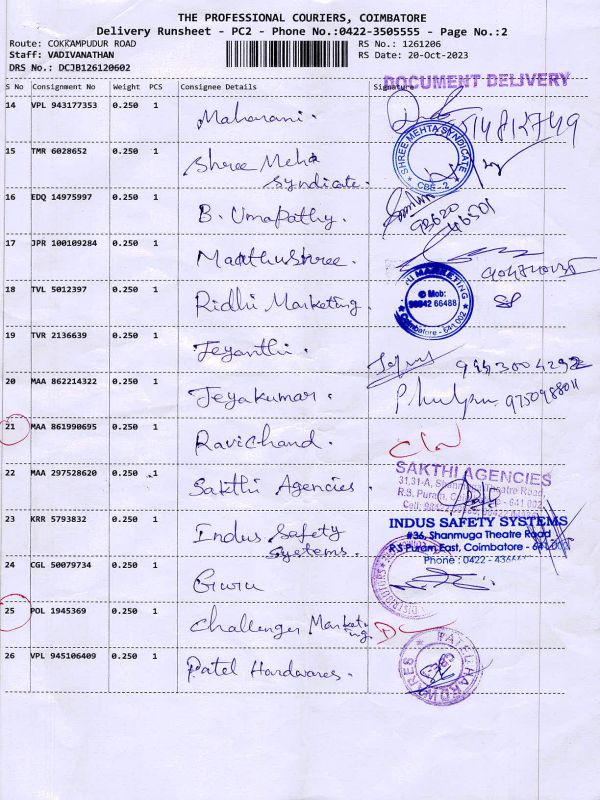 THE PROFESSIONAL COURIERS, COIMBATORE
Delivery Runsheet - PC2 - Phone No.:0422-3505555 - Page No.:2
Route: COKKAMPUDUR ROAD RS No.: 1261206
Staff: VADIVANATHAN RS Date: 20-Oct-2023
DRS No.: DCJB126120602
DOCUMENT DELIVERY
S No Consignment No Weight PCS Consignee Details Signature
14 VPL 943177353 0.250 1 Maharani.
15 TMR 6028652 0.250 1 Shree Meha
Syndicate.
SHREE MEHTA SYNDICATE
CBE-2
16 EDQ 14975997 0.250 1 B. Umapathy.
93620
46501
17 JPR 100109284 0.250 1 Maathushree.
18 TVL 5012397 0.250 1 Ridhi Marketing.
MARKETING
Mob:
66488
Coimbatore - 641 002
19 TVR 2136639 0.250 1 Jeyanthi.
20 MAA 862214322 0.250 1 Jeyakumar. 9750988011
21 MAA 861990695 0.250 1 Ravichand.
22 MAA 297528620 0.250 1 Sakthi Agencies.
SAKTHI AGENCIES
31,31-A, Shanmuga Theatre Road,
R.S. Puram, - 641 002
23 KRR 5793832 0.250 1 Indus Safety
Systems.
INDUS SAFETY SYSTEMS
#36, Shanmuga Theatre Road
R S Puram East, Coimbatore - 641 002
Phone : 0422 -
24 CGL 50079734 0.250 1 Guru
25 POL 1945369 0.250 1 Challenger Marketing. DC
26 VPL 945106409 0.250 1 Patel Hardwares.
PATEL HARDWARES
CBE-2